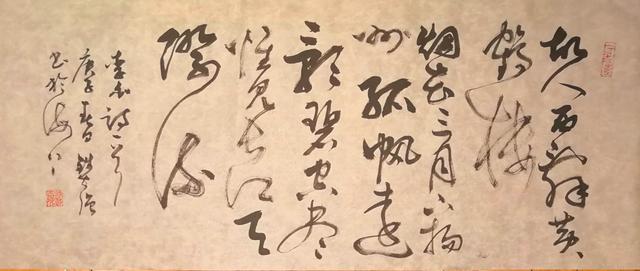 故人西辭黃
鶴樓
烟花三月下揚
州孤帆遠
影碧空盡
惟見長江天
際流
李白詩一首
庚子春日
書於海上